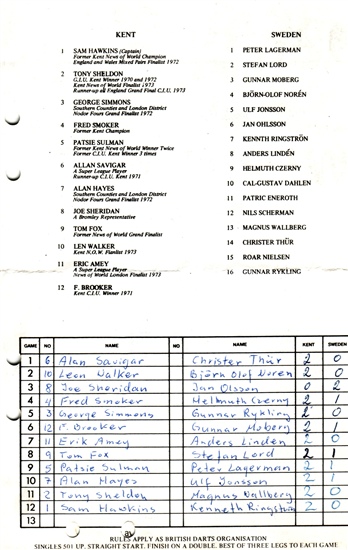 KENT
1 SAM HAWKINS (Captain)
Former Kent News of World Champion
England and Wales Mixed Pairs Finalist 1972
2 TONY SHELDON
C.I.U. Kent Winner 1970 and 1972
Kent News of World Finalist 1973
Runner-up all England Grand Final C.I.U. 1973
3 GEORGE SIMMONS
Southern Counties and London District
Nodor Fours Grand Finalist 1972
4 FRED SMOKER
Former Kent Champion
5 PATSIE SULMAN
Former Kent News of World Winner Twice
Former C.I.U. Kent Winner 3 times
6 ALLAN SAVIGAR
A Super League Player
Runner-up C.I.U. Kent 1971
7 ALAN HAYES
Southern Counties and London District
Nodor Fours Grand Finalist 1972
8 JOE SHERIDAN
A Bromley Representative
9 TOM FOX
Former News of World Grand Finalist
10 LEN WALKER
Kent N.O.W. Finalist 1973
11 ERIC AMEY
A Super League Player
News of World London Finalist 1973
12 F. BROOKER
Kent C.I.U. Winner 1971
SWEDEN
1 PETER LAGERMAN
2 STEFAN LORD
3 GUNNAR MOBERG
4 BJÖRN-OLOF NORÉN
5 ULF JONSSON
6 JAN OHLSSON
7 KENNTH RINGSTRÖN
8 ANDERS LINDÉN
9 HELMUTH CZERNY
10 CAL-GUSTAV DAHLEN
11 PATRIC ENEROTH
12 NILS SCHERMAN
13 MAGNUS WALLBERG
14 CHRISTER THÜR
15 ROAR NIELSEN
16 GUNNAR RYKLING
GAME NO NAME NO NAME KENT SWEDEN
1 6 Alan Savigar Christer Thür 2 0
2 10 Leon Walker Björn Olof Noren 2 0
3 8 Joe Sheridan Jan Olsson 0 2
4 4 Fred Smoker Helmuth Czerny 2 1
5 3 George Simmons Gunnar Rykling 2 0
6 12 F. Brooker Gunnar Moberg 2 1
7 11 Erik Amey Anders Linden 2 0
8 9 Tom Fox Stefan Lord 2 1
9 5 Patsie Sulman Peter Lagerman 2 1
10 7 Alan Hayes Ulf Jonsson 2 1
11 2 Tony Sheldon Magnus Wallberg 2 0
12 1 Sam Hawkins Kenneth Ringström 2 0
13
RULES APPLY AS BRITISH DARTS ORGANISATION
SINGLES 501 UP, STRAIGHT START. FINISH ON A DOUBLE. BEST OF THREE LEGS TO EACH GAME